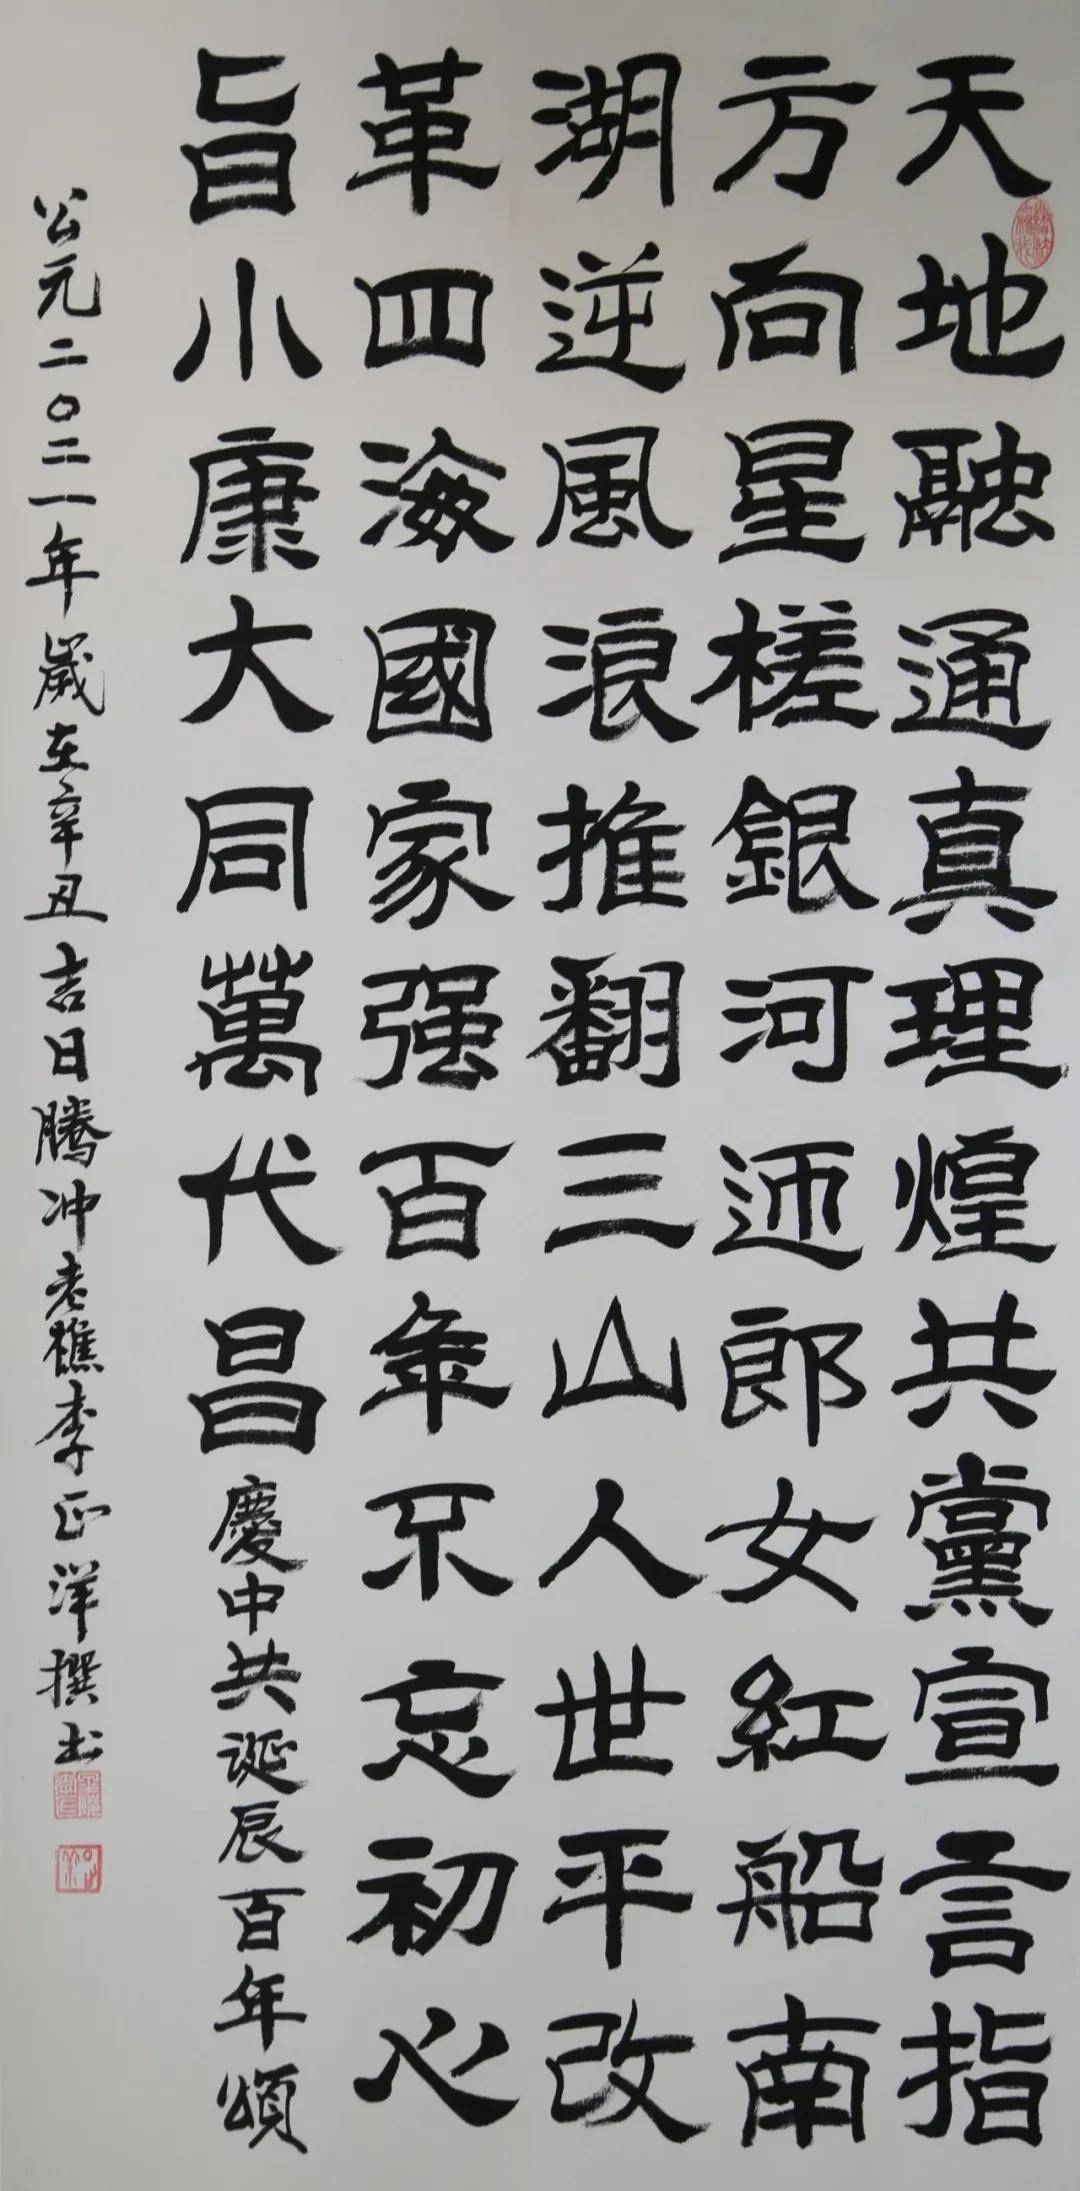 天地融通真理煌共黨宣言指
方向星槎銀河迊郎女紅船南
湖逆風浪推翻三山人世平改
革四海國家强百年不忘初心
旨小康大同萬代昌慶中共诞辰百年頌
公元二〇二一年歲在辛丑吉日騰冲老樵李正洋撰书